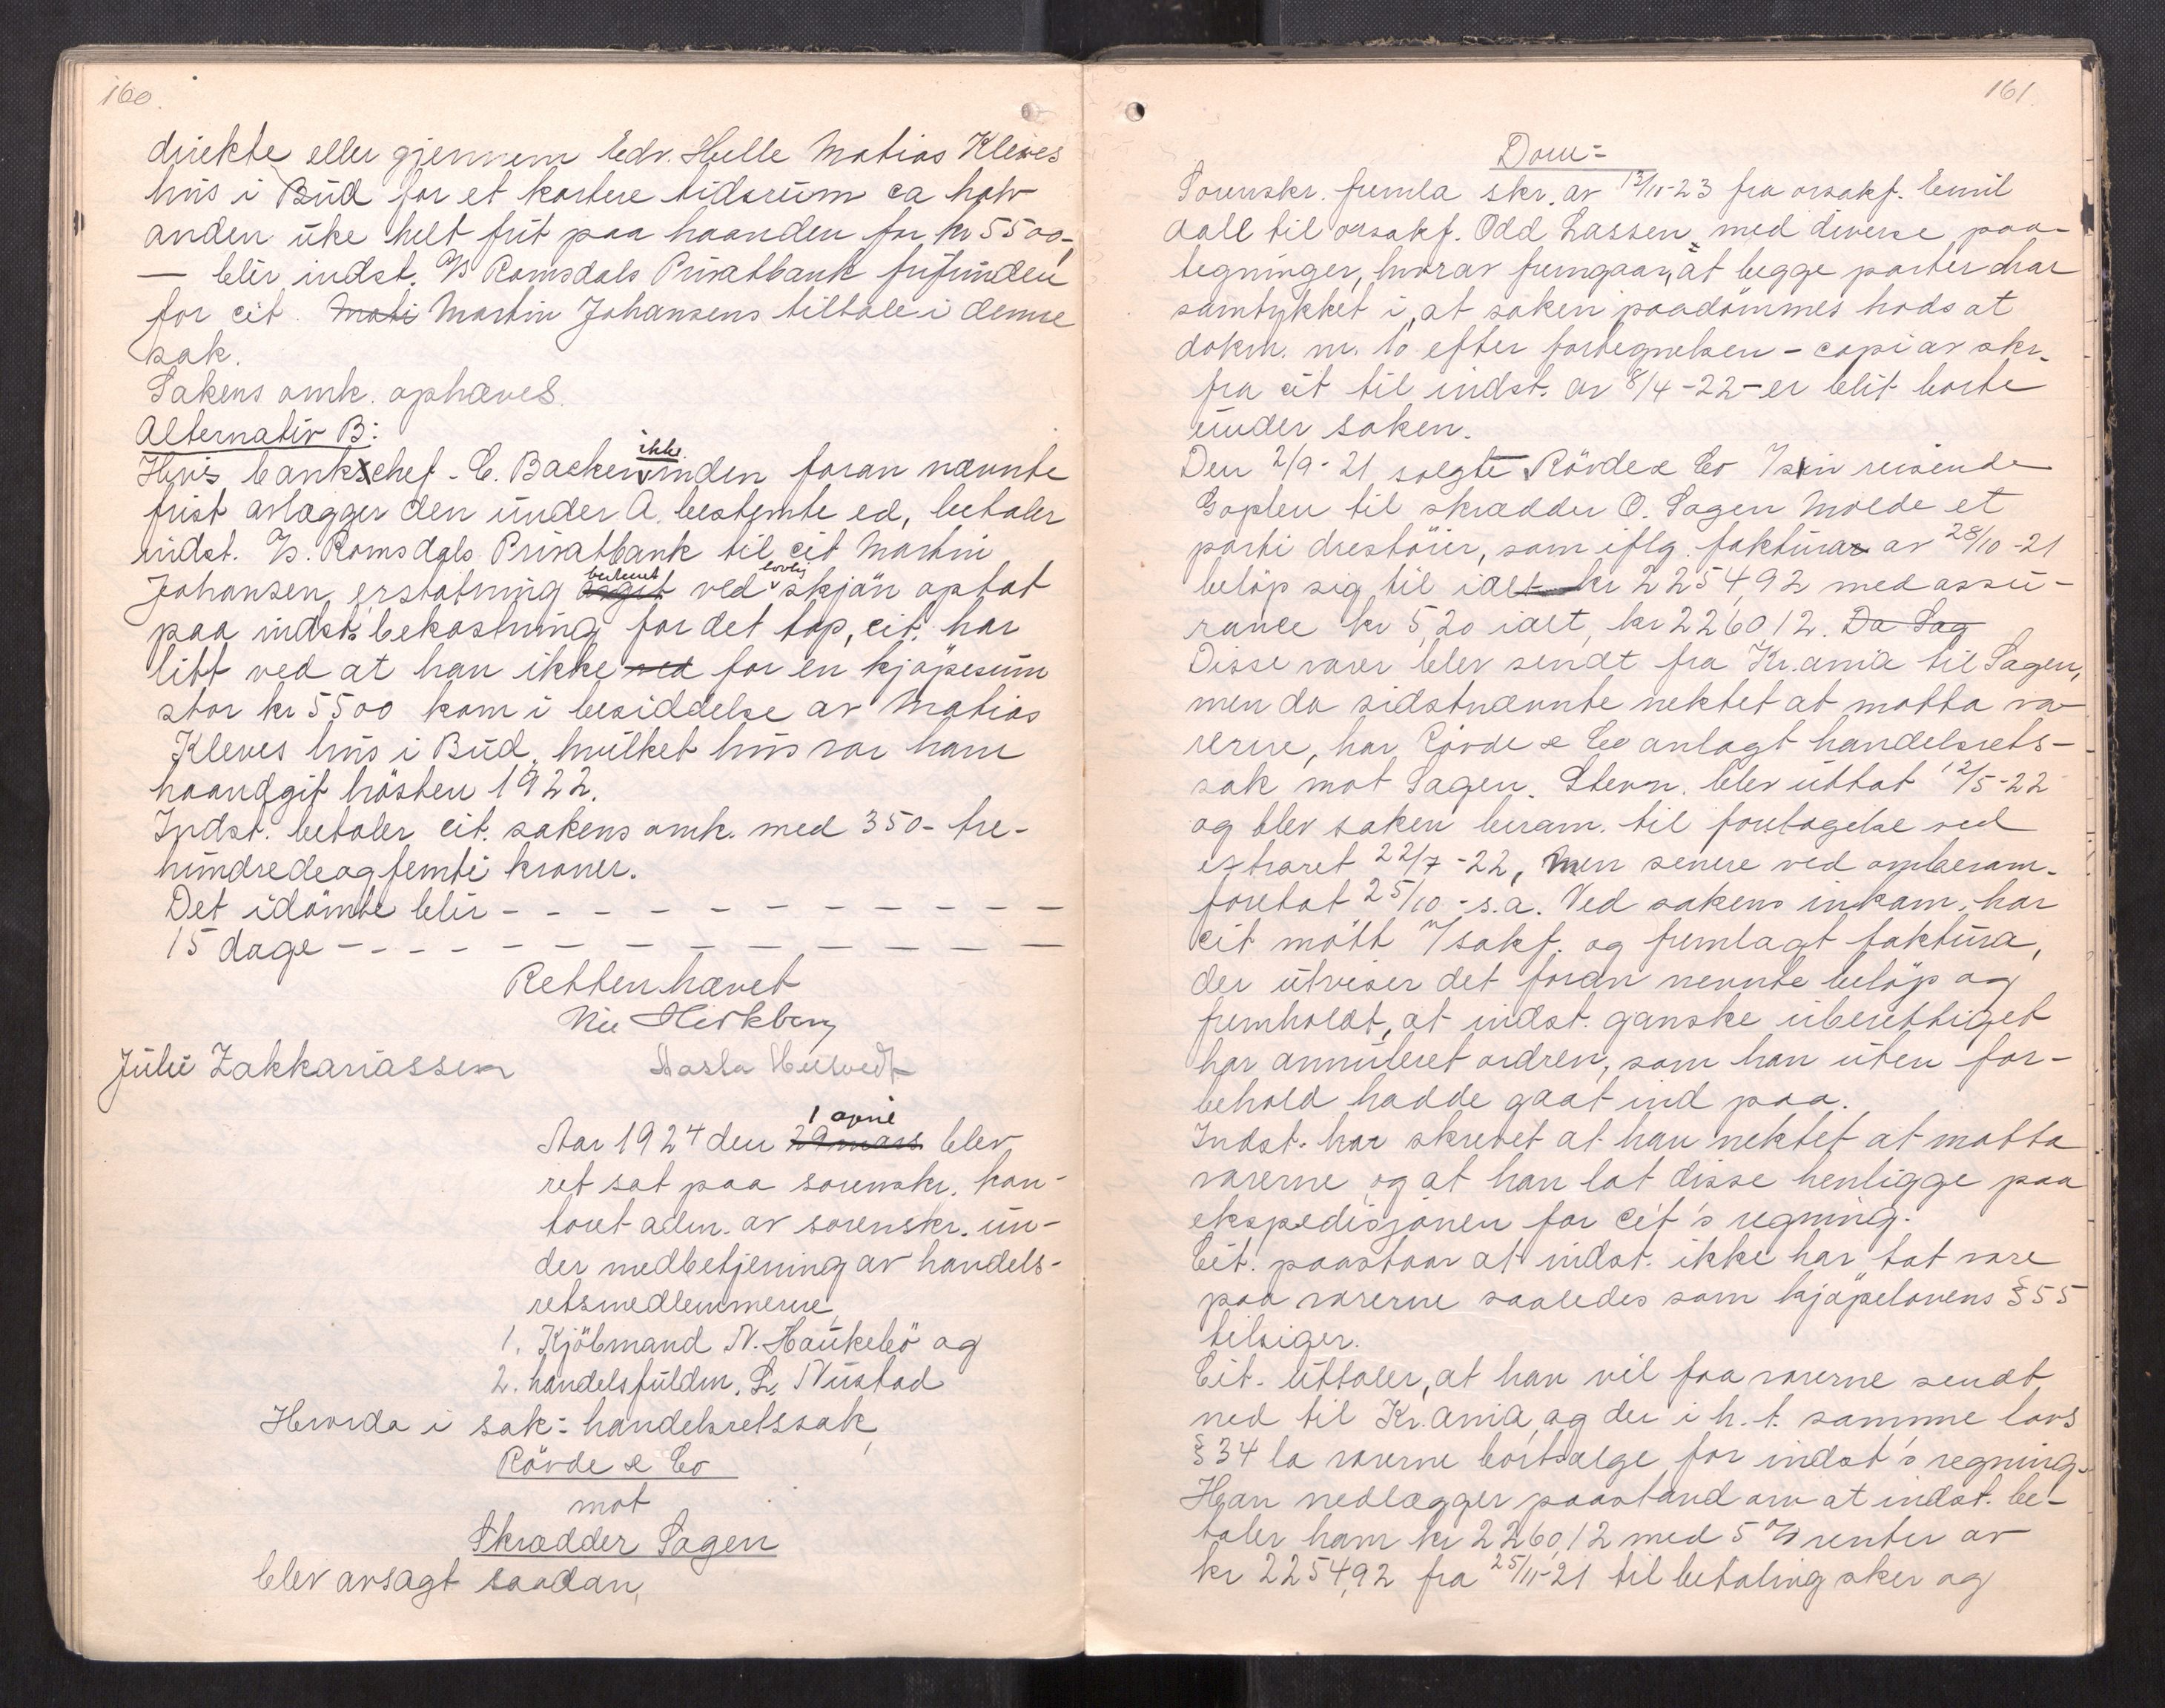 160.
direkte eller gjennem Edv. Helle Matias Kleves
hus i Bud for et kortere tidsrum ca halv
anden uke helt frit paa haanden for kr 5500,-
— blir indst. A/S Romsdals Privatbank frifunden
for cit. Mati Martin Johansens tiltale i denne
sak.
Sakens omk. ophæves.
Alternativ B:
Hvis bankschef E. Backer ikke inden foran nævnte
frist avlægger den under A. bestemte ed, betaler
indst. A/S. Romsdals Privatbank til cit Martin
Johansen erstatning avgit bestemt ved lovlig skjön optat
paa indst.s bekostning for det tap, cit. har
litt ved at han ikke ved for en kjöpesum
stor kr 5500 kom i besiddelse av Matias
Kleves hus i Bud, hvilket hus var ham
haandgit hösten 1922.
Indst. betaler cit. sakens omk. med 350- tre-
hundredeogfemti kroner.
Det idömte blir - - - - - - - - - - -
15 dage - - - - - - - - - - - -
Retten hævet
Herkberg
Julie Zakkariassen
Aasta
Aar 1924 den 29 mars 1 april blev
ret sat paa sorenskr. kon-
toret adm. av sorenskr. un-
der medbetjening av handels-
retsmedlemmerne,
1. Kjöbmand N. Haukebö og
2. handelsfuldm. L. Nustad
Hvorda i sak: handelsretssak,
Rövde & Co
mot
Skrædder Sagen
blev avsagt saadan,
161.
Dom:
Sorenskr. fremla skr. av 13/11-23 fra orsakf. Emil
Aall til orsakf. Odd Lassen med diverse paa-
tegninger, hvorav fremgaar, at begge parter har
samtykket i, at saken paadömmes trods at
dokm. nr. 10 efter fortegnelsen - copi av skr.
fra cit til indst. av 8/4-22 - er blit borte
under saken.
Den 2/9-21 solgte Rövde & Co v/sin reisende
Goplen til skrædder O. Sagen Molde et
parti drestöier, som iflg. faktura av 28/10-21
belöp sig til ialt kr 2254,92 med assu-
rance kr 5,20 ialt, kr 2260,12. Da Sag
Disse varer blev sendt fra Kr.ania til Sagen,
men da sidstnævnte nektet at motta va-
rerne, har Rövde & Co anlagt handelsrets-
sak mot Sagen. Stevn. blev uttat 12/5-22
og blev saken beram. til foretagelse ved
extraret 22/7-22, men senere ved omberam.
foretat 25/10 - s.a. Ved sakens inkam. har
cit mött v/sakf. og fremlagt faktura,
der utviser det foran nevnte belöp og
fremholdt, at indst. ganske uberettiget
har annuleret ordren, som han uten for-
behold hadde gaat ind paa.
Indst. har skrevet at han nektet at motta
varerne og at han lot disse henligge paa
ekspedisjonen for cit's regning.
Cit. paastaar at indst. ikke har tat vare
paa varerne saaledes som kjöpelovens § 55
tilsiger.
Cit. uttaler, at han vil faa varerne sendt
ned til Kr.ania, og der i h. t. samme lovs
§ 34 la varerne bortsælge for indst's regning.
Han nedlægger paastand om at indst. be-
taler ham kr 2260,12 med 5 % renter av
kr 2254,92 fra 25/11-21 til betaling sker og